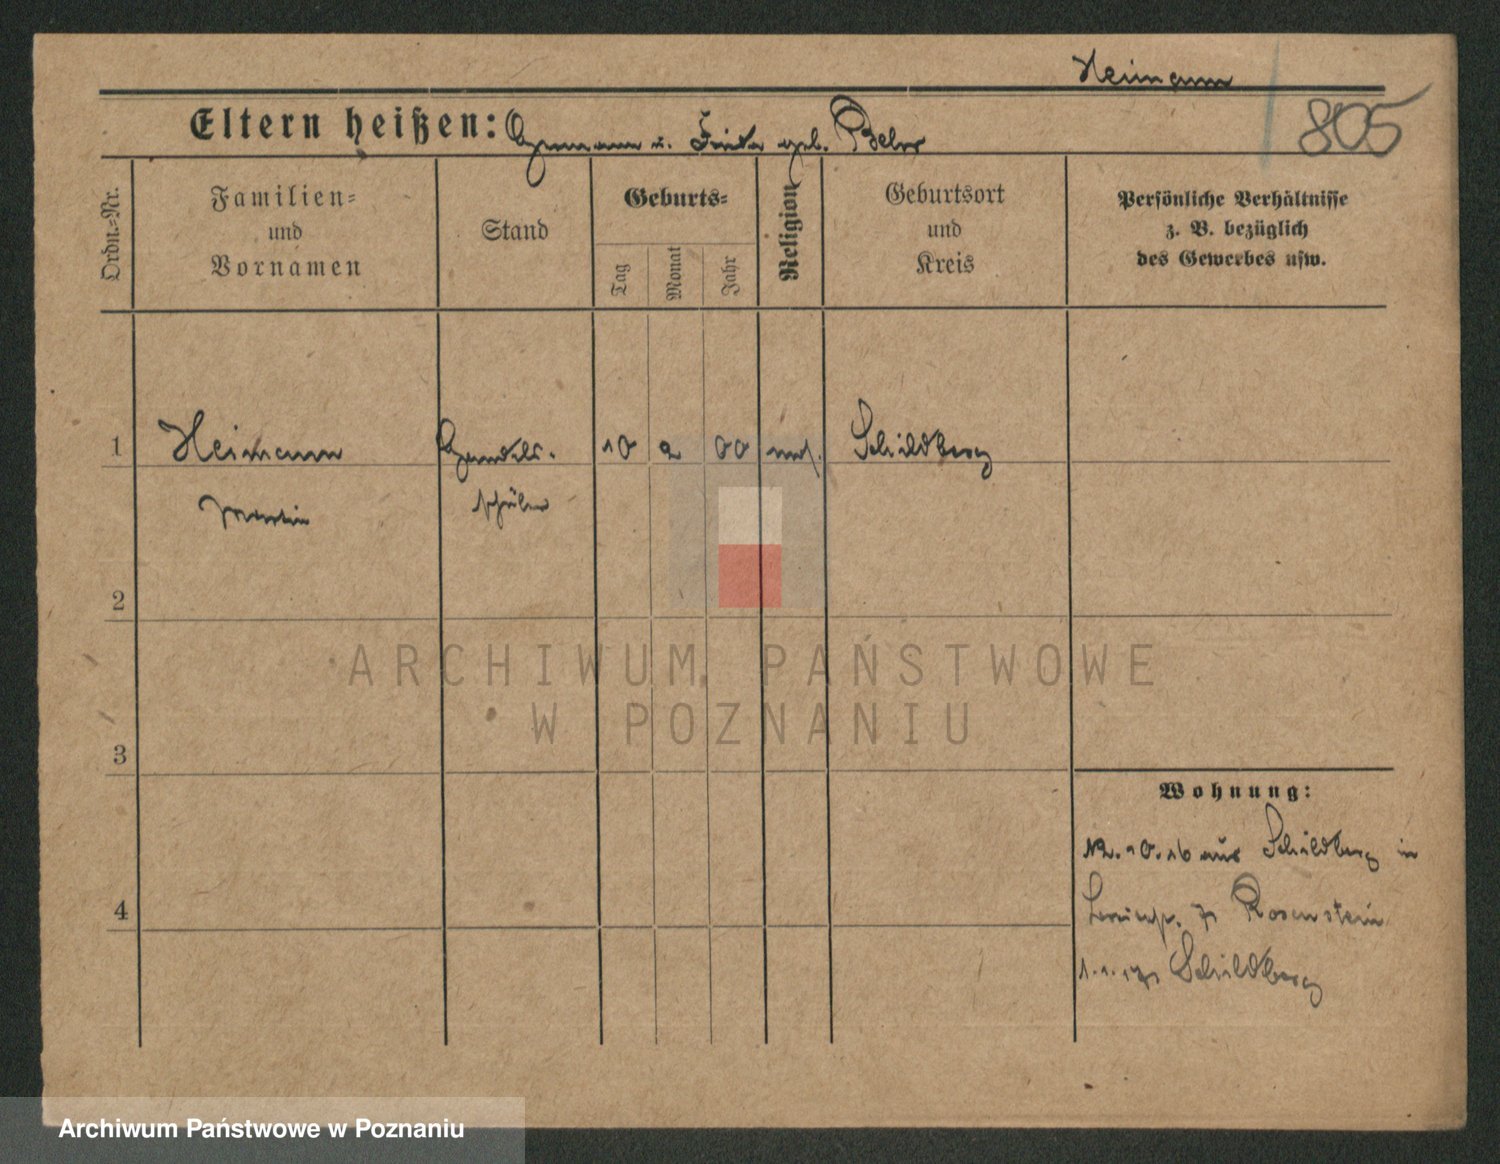 Heimann
805
Eltern heißen: Hermann u. geb.
Ordn.=Nr.
Familien=
und
Vornamen
Stand
Geburts=
Tag
Monat
Jahr
Religion
Geburtsort
und
Kreis
Persönliche Verhältnisse
z. B. bezüglich
des Gewerbes usw.
1
Heimann
Handels-
10
2
00
mos.
Schildberg
Martin
schüler
2
ARCHIWUM PAŃSTWOWE
W POZNANIU
3
Wohnung:
12.10.16 aus Schildberg in
4
Rosenstein
Schildberg
Archiwum Państwowe w Poznaniu